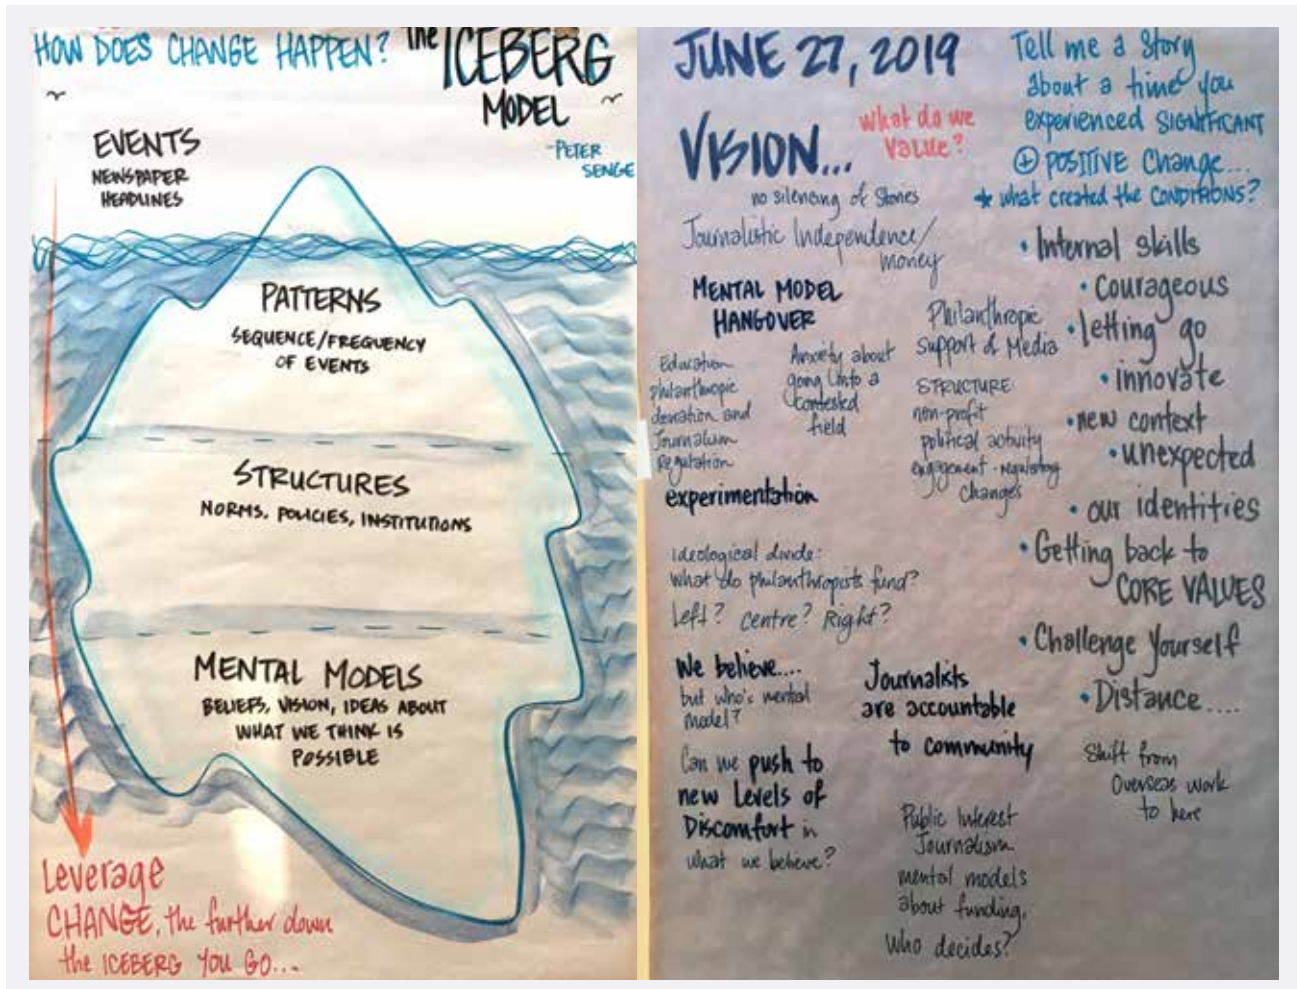 HOW DOES CHANGE HAPPEN?
the ICEBERG
MODEL
-PETER
SENGE
EVENTS
NEWSPAPER
HEADLINES
PATTERNS
SEQUENCE/FREQUENCY
OF EVENTS
STRUCTURES
NORMS, POLICIES, INSTITUTIONS
MENTAL MODELS
BELIEFS, VISION, IDEAS ABOUT
WHAT WE THINK IS
POSSIBLE
Leverage
CHANGE, the further down
the ICEBERG YOU GO...
JUNE 27, 2019
VISION...
what do we
Value?
no silencing of stories
Journalistic Independence/
money
MENTAL MODEL
HANGOVER
Education
philanthropic
donation and
Journalism
Regulation
Anxiety about
going into a
contested
field
Philanthropic
Support of Media
STRUCTURE:
non-profit
political activity
engagement - regulatory
changes
experimentation
ideological divide:
what do philanthropists fund?
Left? Centre? Right?
We believe....
but who's mental
model?
Can we push to
new Levels of
Discomfort in
what we believe?
Journalists
are accountable
to community
Public Interest
Journalism
mental models
about funding,
who decides?
Tell me a Story
about a time you
experienced SIGNIFICANT
+ POSITIVE Change...
* what created the CONDITIONS?
• Internal skills
• Courageous
• letting go
• innovate
• new context
• unexpected
• our identities
• Getting back to
CORE VALUES
• Challenge Yourself
• Distance....
Shift from
Overseas work
to here